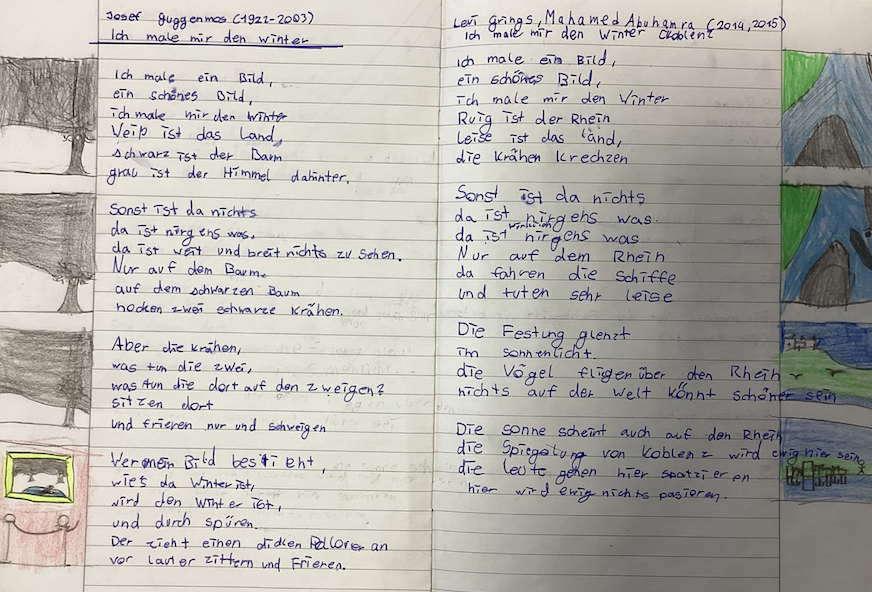 Josef Guggenmos (1922-2003)
Ich male mir den Winter
Ich male ein Bild,
ein schönes Bild,
ich male mir den Winter
Weiß ist das Land,
schwarz ist der Baum
grau ist der Himmel dahinter.
Sonst ist da nichts
da ist nirgens was.
da ist weit und breit nichts zu sehen.
Nur auf dem Baum.
auf dem schwarzen Baum
hocken zwei schwarze Krähen.
Aber die Krähen,
was tun die zwei,
was tun die dort auf den zweigen?
sitzen dort
und frieren nur und schweigen
Wer mein Bild besieht,
wies da Winter ist,
wird den Winter ist,
und durch spüren.
Der zieht einen dicken Pullover an
vor lauter zittern und Frieren.
Levi Grings, Mahamed Abuhamra (2014, 2015)
Ich male mir den Winter (Koblenz
ich male ein Bild,
ein schönes Bild,
ich male mir den Winter
Ruig ist der Rhein
Leise ist das länd,
die Krähen krechzen
Sonst ist da nichts
da ist nirgens was.
da ist wirklich nirgens was
Nur auf dem Rhein
da fahren die Schiffe
und tuten sehr leise
Die Festung glenzt
im sonnenlicht.
die Vögel fligen über den Rhein
nichts auf der welt könnt schöner sein
Die sonne scheint auch auf den Rhein
die Spiegelung von Koblenz wird ewig hier sein
die leute gehen hier spatzieren
hier wird ewig nichts pasieren.